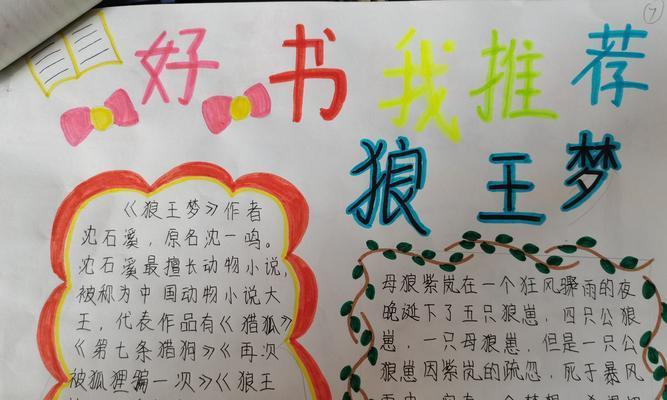 好书我推荐
狼王梦
《狼王梦》作者
沈石溪，原名沈一鸣。
沈石溪最擅长动物小说，
被称为中国动物小说大
王，代表作品有《猎狐》
《第七条猎狗》《再次
被狐狸骗一次》《狼王
母狼紫岚在一个狂风骤雨的夜
晚诞下了五只狼崽，四只公狼
崽，一只母狼崽，但是一只公
狼崽因紫岚的疏忽，死于暴风
7